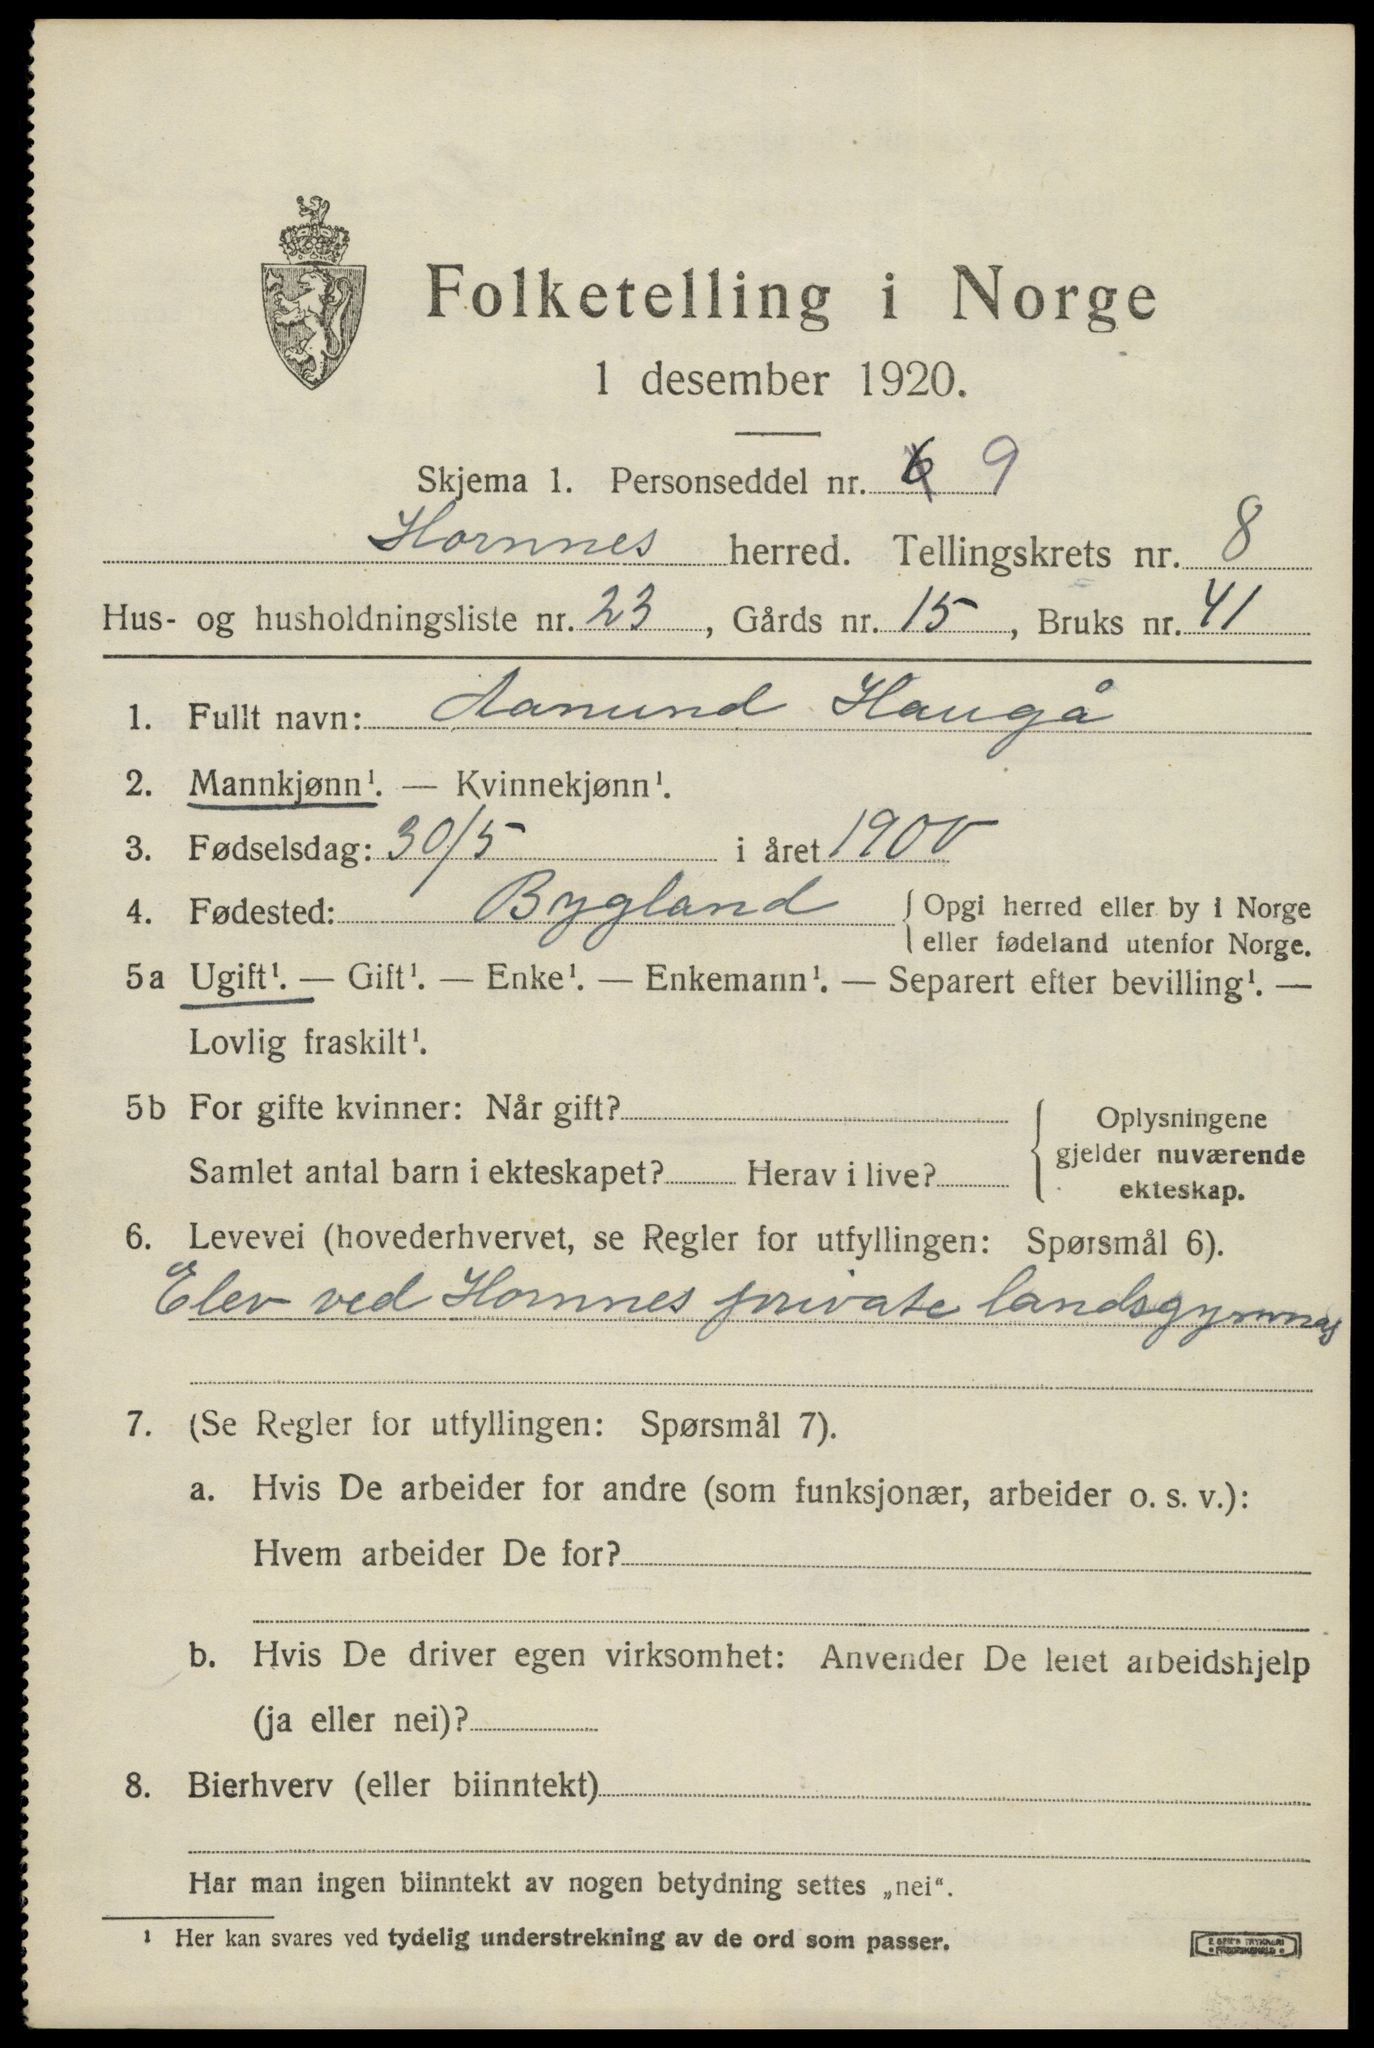 Folketelling i Norge
1 desember 1920.
Skjema 1. Personseddel nr. 6 9
Hornnes herred. Tellingskrets nr. 8
Hus- og husholdningsliste nr. 23, Gårds nr. 15, Bruks nr. 41
1. Fullt navn: Aanund Haugå
2. Mannkjønn¹. — Kvinnekjønn¹.
3. Fødselsdag: 30/5 i året 1900
4. Fødested: Bygland { Opgi herred eller by i Norge
eller fødeland utenfor Norge.
5a Ugift¹. — Gift¹. — Enke¹. — Enkemann¹. — Separert efter bevilling¹. —
Lovlig fraskilt¹.
5b For gifte kvinner: Når gift?
Samlet antal barn i ekteskapet? Herav i live?
Oplysningene
gjelder nuværende
ekteskap.
6. Levevei (hovederhvervet, se Regler for utfyllingen: Spørsmål 6).
Elev ved Hornnes private landsgymnas
7. (Se Regler for utfyllingen: Spørsmål 7).
a. Hvis De arbeider for andre (som funksjonær, arbeider o. s. v.):
Hvem arbeider De for?
b. Hvis De driver egen virksomhet: Anvender De leiet arbeidshjelp
(ja eller nei)?
8. Bierhverv (eller biinntekt)
Har man ingen biinntekt av nogen betydning settes „nei“.
¹ Her kan svares ved tydelig understrekning av de ord som passer.